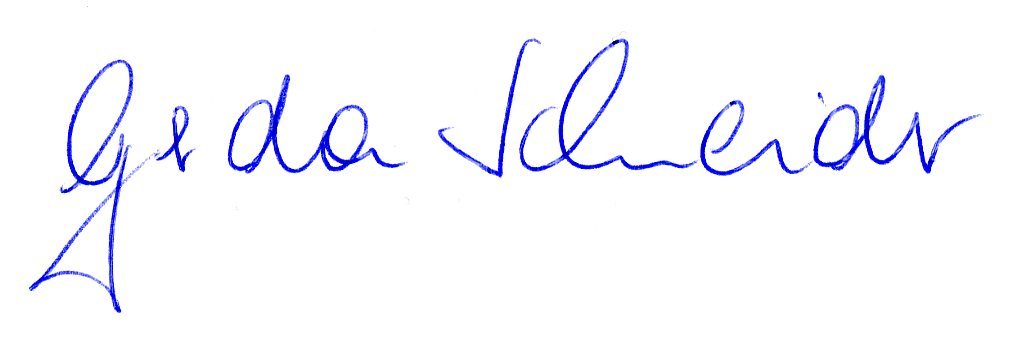 Gerda Schneider